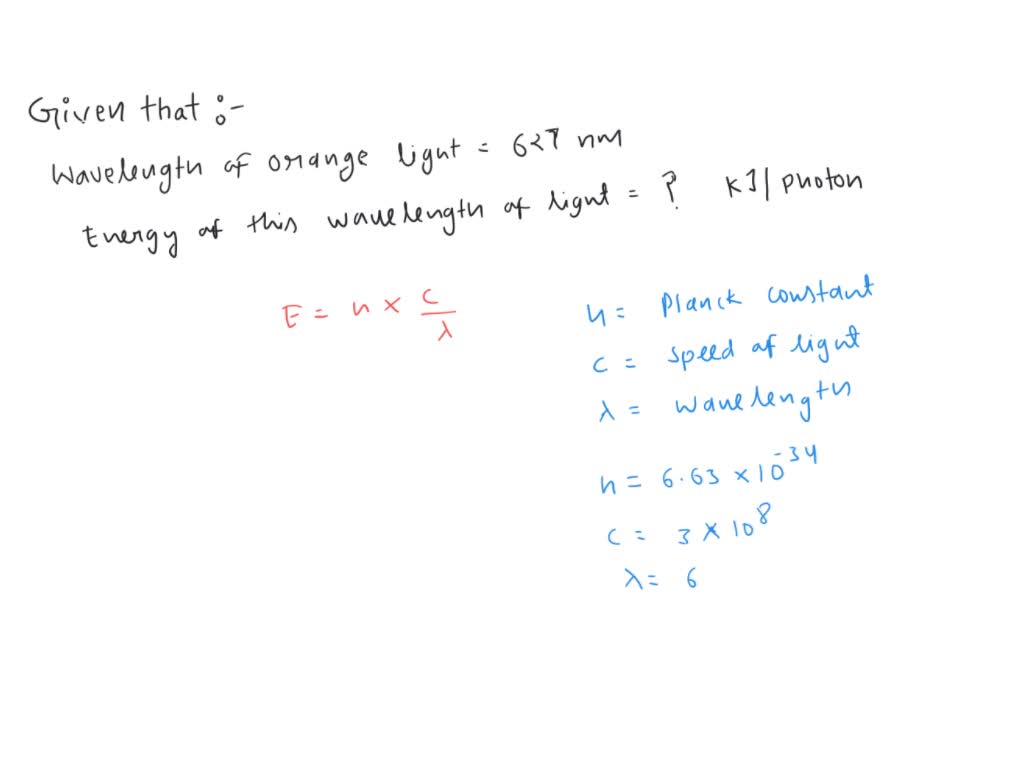 Given that :-
Wavelength of orange light = 627 nm
Energy of this wavelength of light = ? kJ/photon
E = h × c/λ
h = Planck constant
c = speed of light
λ = wavelength
h = 6.63 × 10⁻³⁴
c = 3 × 10⁸
λ = 6